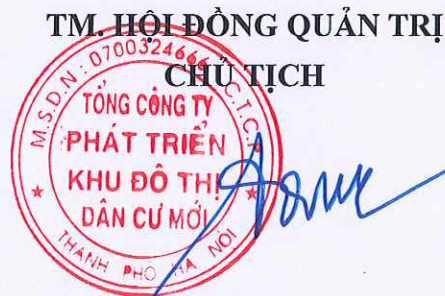 TM. HỘI ĐỒNG QUẢN TRỊ
CHỦ TỊCH
M.S.D.N: 0700324666 C.T.C.P
TỔNG CÔNG TY
PHÁT TRIỂN
KHU ĐÔ THỊ
DÂN CƯ MỚI
THÀNH PHỐ HÀ NỘI